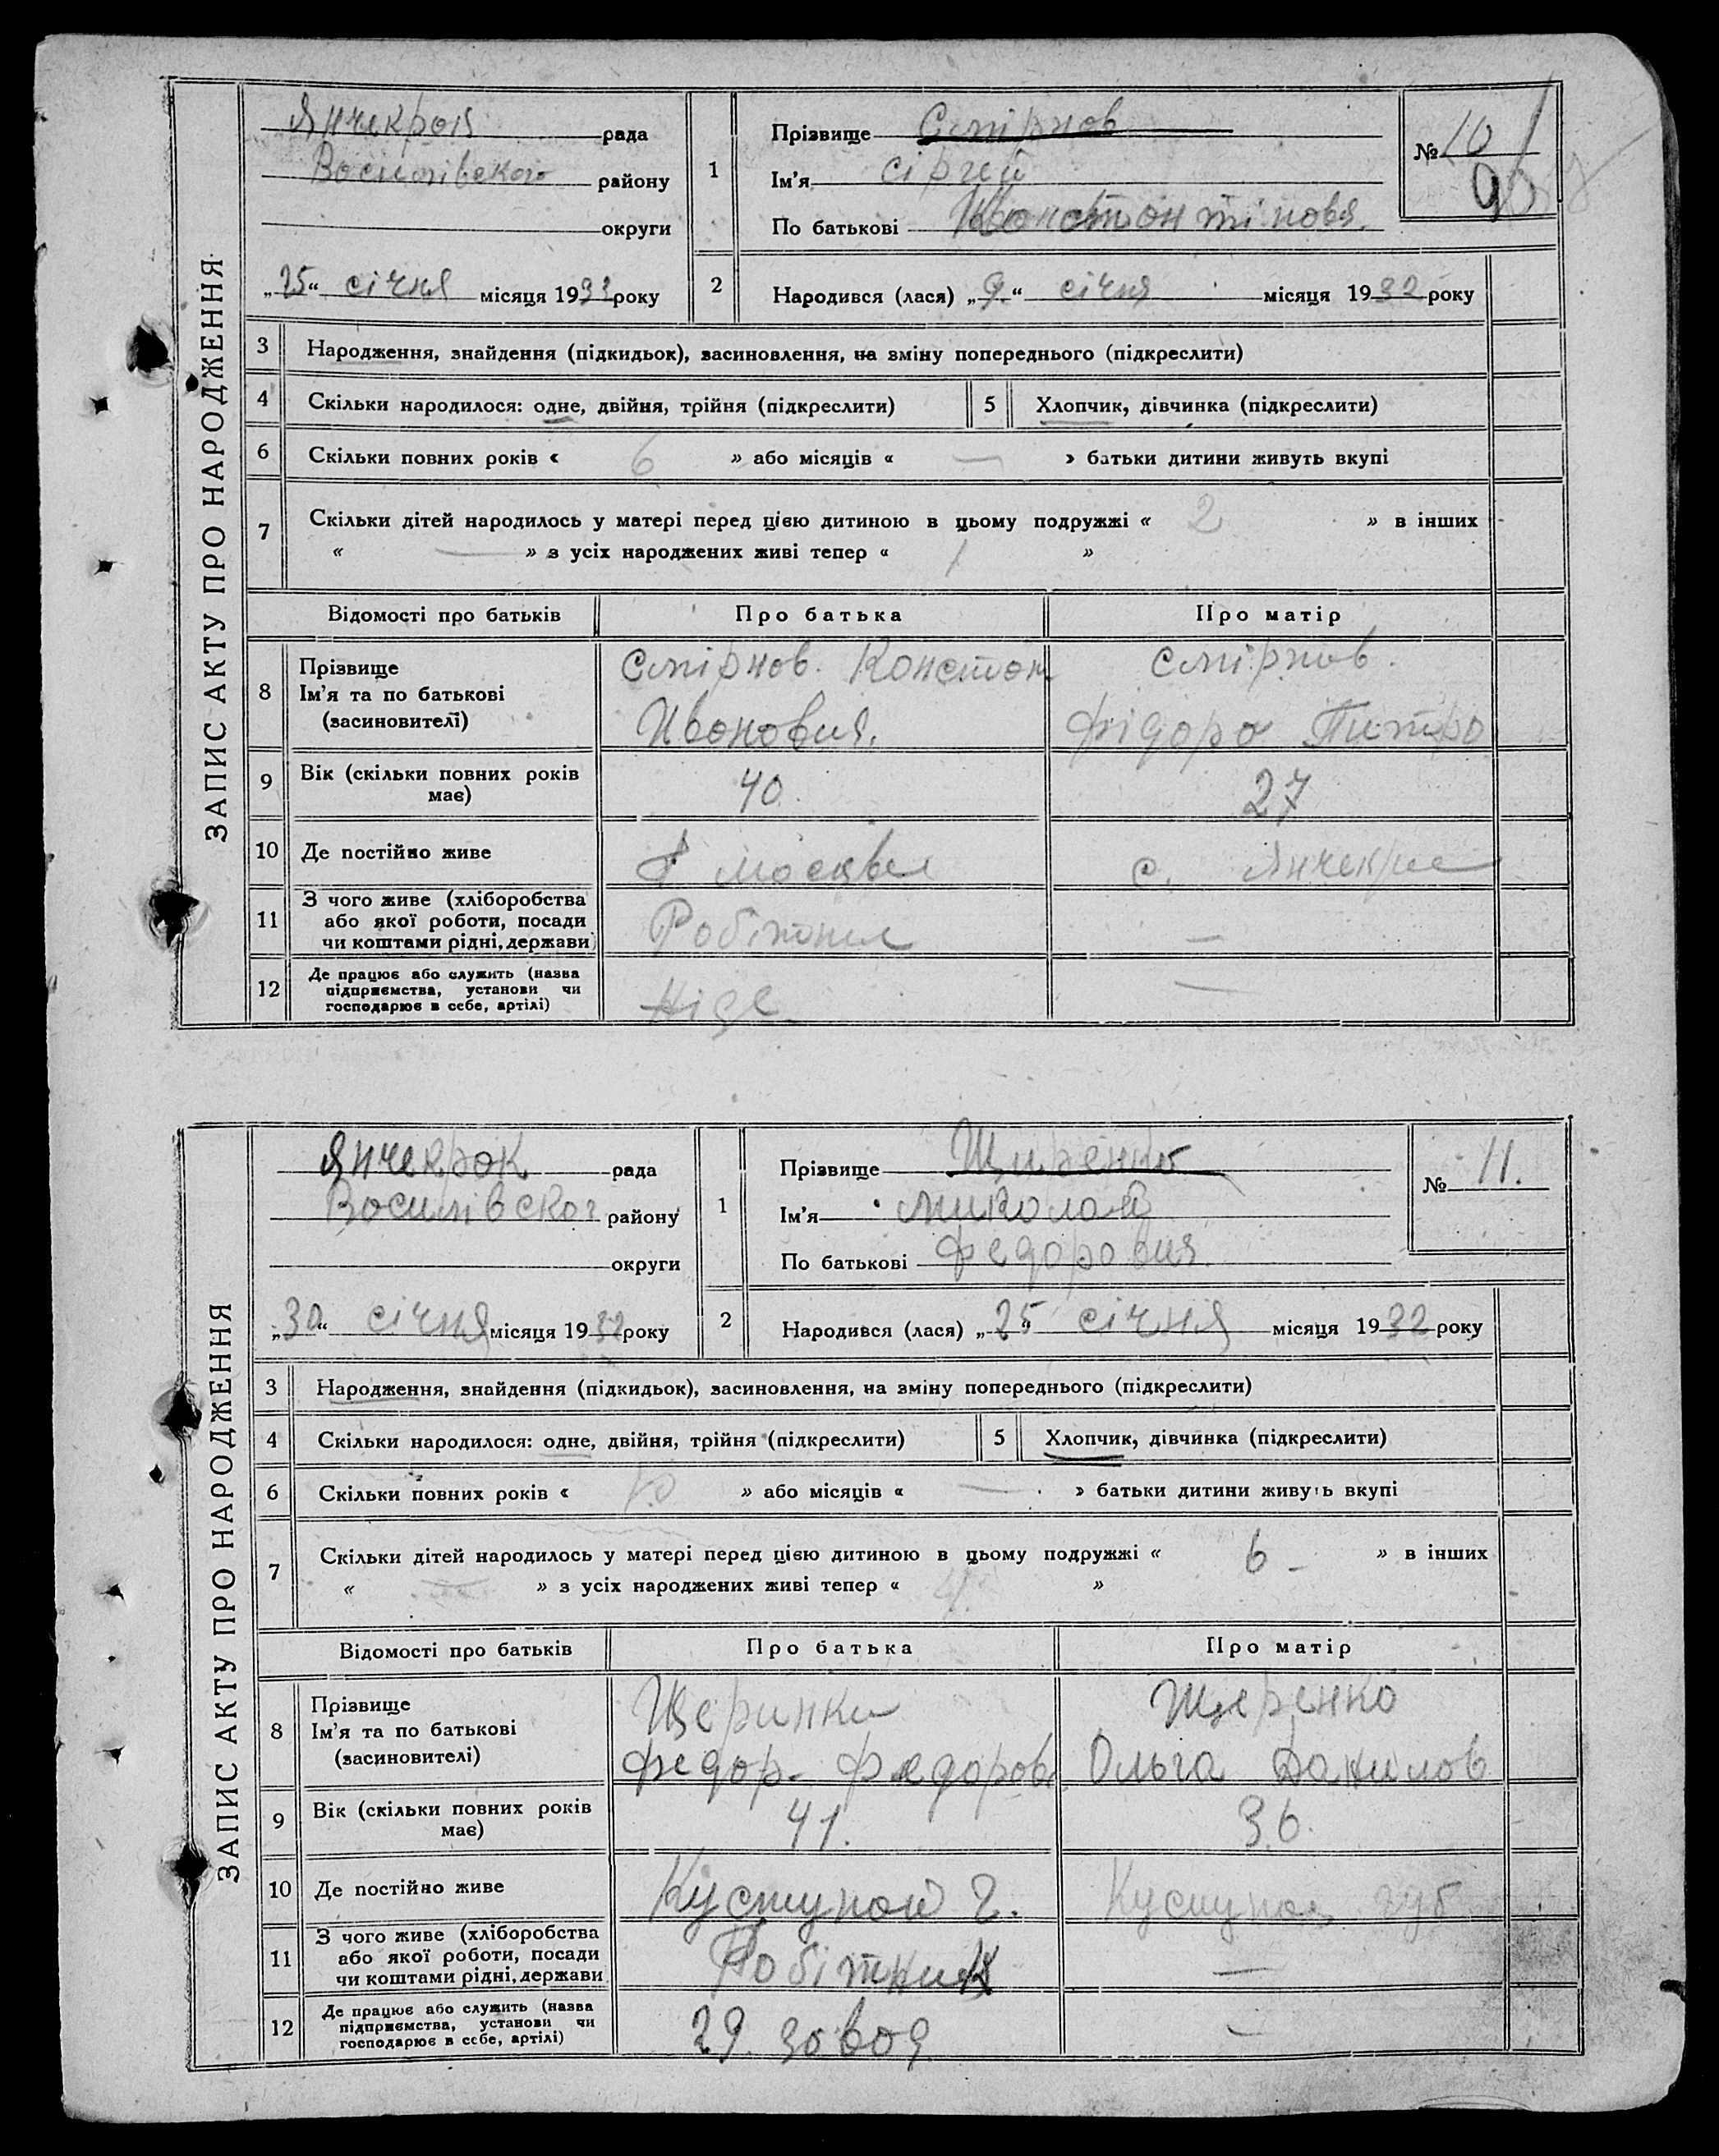 ЗАПИС АКТУ ПРО НАРОДЖЕННЯ
Янчекрок рада
Восилівского району
округи
„25“ січня місяця 1932 року
1
Прізвище Смірнов
Ім'я Сіргей
По батькові Констонтінов
№ 10
2
Народився (лася) „9“ січня місяця 1932 року
3 Народження, знайдення (підкидьок), засиновлення, на зміну попереднього (підкреслити)
4 Скільки народилося: одне, двійня, трійня (підкреслити) 5 Хлопчик, дівчинка (підкреслити)
6 Скільки повних років « 6 » або місяців « — » батьки дитини живуть вкупі
7 Скільки дітей народилось у матері перед цією дитиною в цьому подружжі « 2 » в інших
« — » з усіх народжених живі тепер « 1 »
Відомості про батьків Про батька Про матір
8 Прізвище Смірнов. Констон Смірнов.
Ім'я та по батькові
(засиновителі) Ивонович. Фідора Питро
9 Вік (скільки повних років має) 40. 27
10 Де постійно живе Москве с. Янчекре
11 З чого живе (хліборобства або якої роботи, посади чи коштами рідні, держави) Робітник —
12 Де працює або служить (назва підприємства, установи чи господарює в себе, артілі) Ніде —
ЗАПИС АКТУ ПРО НАРОДЖЕННЯ
Янчекрок рада
Восилівског району
округи
„30“ січня місяця 1932 року
1
Прізвище Щиренко
Ім'я Миколай
По батькові Федорович.
№ 11.
2
Народився (лася) „25“ січня місяця 1932 року
3 Народження, знайдення (підкидьок), засиновлення, на зміну попереднього (підкреслити)
4 Скільки народилося: одне, двійня, трійня (підкреслити) 5 Хлопчик, дівчинка (підкреслити)
6 Скільки повних років « » або місяців « — » батьки дитини живуть вкупі
7 Скільки дітей народилось у матері перед цією дитиною в цьому подружжі « 6 – » в інших
« — » з усіх народжених живі тепер « 4 »
Відомості про батьків Про батька Про матір
8 Прізвище Щеринки Щеренко
Ім'я та по батькові
(засиновителі) Федор- Федорови Ольга Данилов
9 Вік (скільки повних років має) 41. 36.
10 Де постійно живе Кустуной г. Кустуной
11 З чого живе (хліборобства або якої роботи, посади чи коштами рідні, держави) Робітник —
12 Де працює або служить (назва підприємства, установи чи господарює в себе, артілі) 29. зовод —